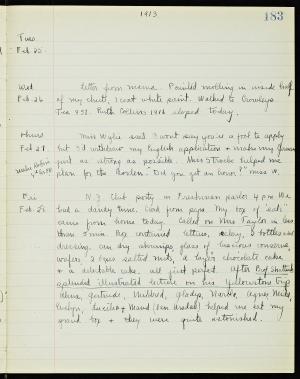 1913
183
Tues
Feb 25.
Wed
Feb 26
Letter from mama. Painted molding in inside
of my chest, 1 coat white paint. Walked to Crowleys
Tea 952. Ruth Collins 1916 eloped today.
Thurs
Feb 27
Miss Wylie said "I won't say you're a fool to apply
but I'd withdraw my English application + make my
just as strong as possible. Miss helped me
plan for the Borden. "Did you get an horn?" miss W.
Fri
Feb 28
N.J. Club party in Freshman parlor 4 P.M. We
had a dandy time. Card from papa. My box of "eats"
came from home today. Called on Mrs Taylor in less
than 5 min. Box contained lettuce, celery, 2 bottles salad
dressing, can dry shrimps, glass of luscious conserve,
wafers, 2 boxes salted nuts, a layer chocolate cake
+ a delectable cake, all just perfect. After Prof
splendid illustrated lecture on his Yellowstone trip
Gertrude, Mildred, Gladys, Agnes,
Evelyn, Lucile + Maud (Van Arsdale) helped me eat my
grand box + they were quite astonished.